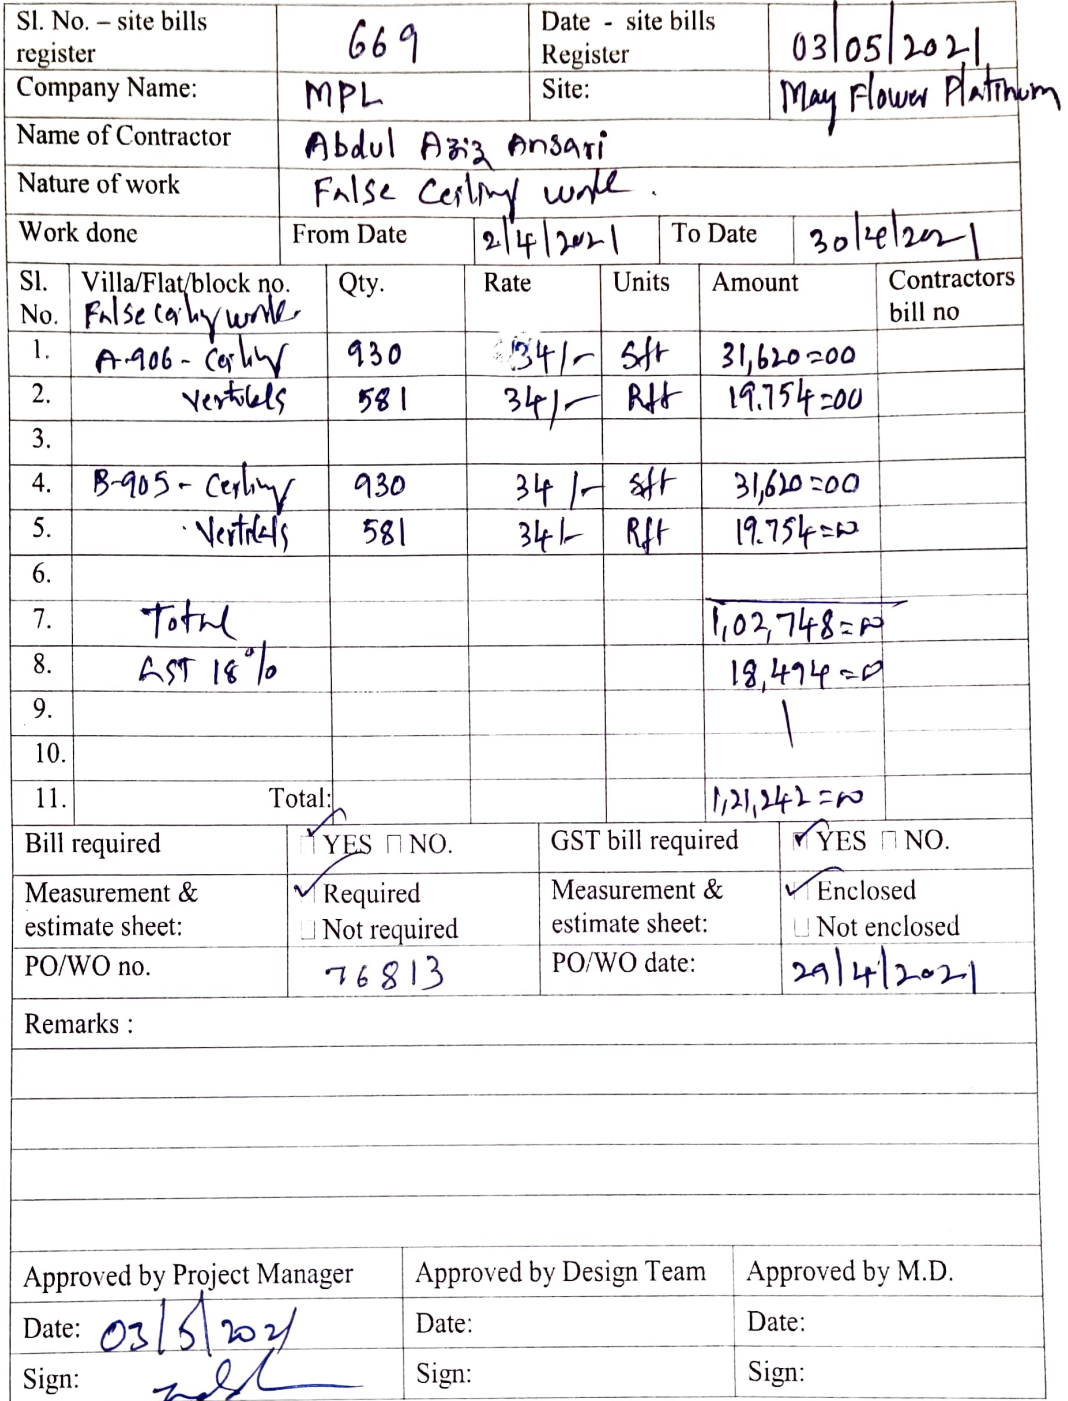 Sl. No. – site bills register 669 Date - site bills Register 03/05/2021
Company Name: MPL Site: May Flower Platinum
Name of Contractor Abdul Aziz Ansari
Nature of work False Ceiling work .
Work done From Date 2/4/2021 To Date 30/4/2021
Sl. No. Villa/Flat/block no. Qty. Rate Units Amount Contractors bill no
False Ceiling work
1. A-906 - Ceiling 930 34/- Sft 31,620=00
2. Verticals 581 34/- Rft 19.754=00
3.
4. B-905 - Ceiling 930 34/- Sft 31,620=00
5. Verticals 581 34/- Rft 19.754=00
6.
7. Total 1,02,748=00
8. GST 18% 18,494=00
9.
10.
11. Total: 1,21,242=00
Bill required YES NO. GST bill required YES NO.
Measurement & estimate sheet: Required Measurement & estimate sheet: Enclosed
Not required Not enclosed
PO/WO no. 76813 PO/WO date: 29/4/2021
Remarks :
Approved by Project Manager Approved by Design Team Approved by M.D.
Date: 03/5/2021 Date: Date:
Sign: Sign: Sign: